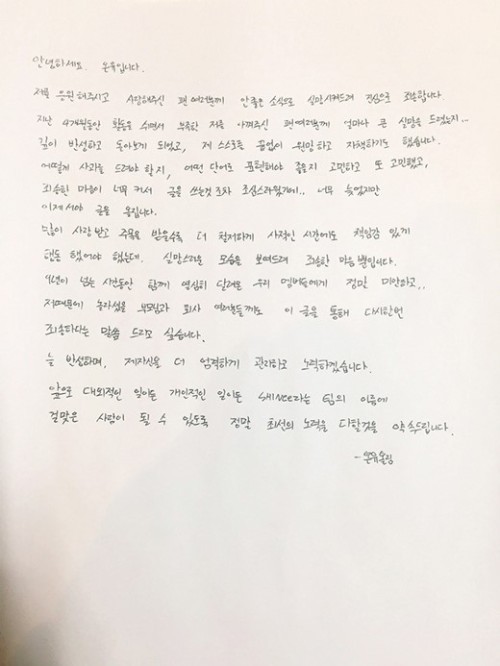 안녕하세요. 온유입니다.
저를 응원해주시고 사랑해주신 팬여러분께 안좋은 소식으로 실망시켜드려 진심으로 죄송합니다.
지난 4개월동안 활동을 쉬면서 부족한 저를 아껴주신 팬여러분께 얼마나 큰 실망을 드렸는지...
깊이 반성하고 돌아보게 되었고, 제 스스로를 끝없이 원망하고 자책하기도 했습니다.
어떻게 사과를 드려야 할지, 어떤 단어로 표현해야 좋을지 고민하고 또 고민했고,
죄송한 마음이 너무 커서 글을 쓰는것 조차 조심스러웠기에.. 너무 늦었지만
이제서야 글을 올립니다.
많이 사랑받고 주목을 받을수록 더 철저하게 사적인 시간에도 책임감 있게
행동 했어야 했는데. 실망스러운 모습을 보여드려 죄송한 마음 뿐입니다.
9년이 넘는 시간동안 함께 열심히 달려온 우리 멤버들에게 정말 미안하고..
저때문에 놀라셨을 부모님과 회사 여러분들께도 이 글을 통해 다시한번
죄송하다는 말씀 드리고 싶습니다.
늘 반성하며, 제자신을 더 엄격하게 관리하고 노력하겠습니다.
앞으로 대외적인 일이든 개인적인 일이든 SHINee라는 팀의 이름에
걸맞은 사람이 될 수 있도록 정말 최선의 노력을 다할것을 약속드립니다.
- 온유올림